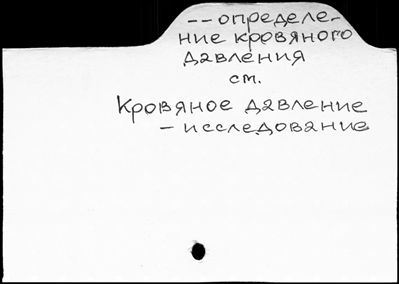 -- определе-
ние кровяного
давления
см.
Кровяное давление
- исследование